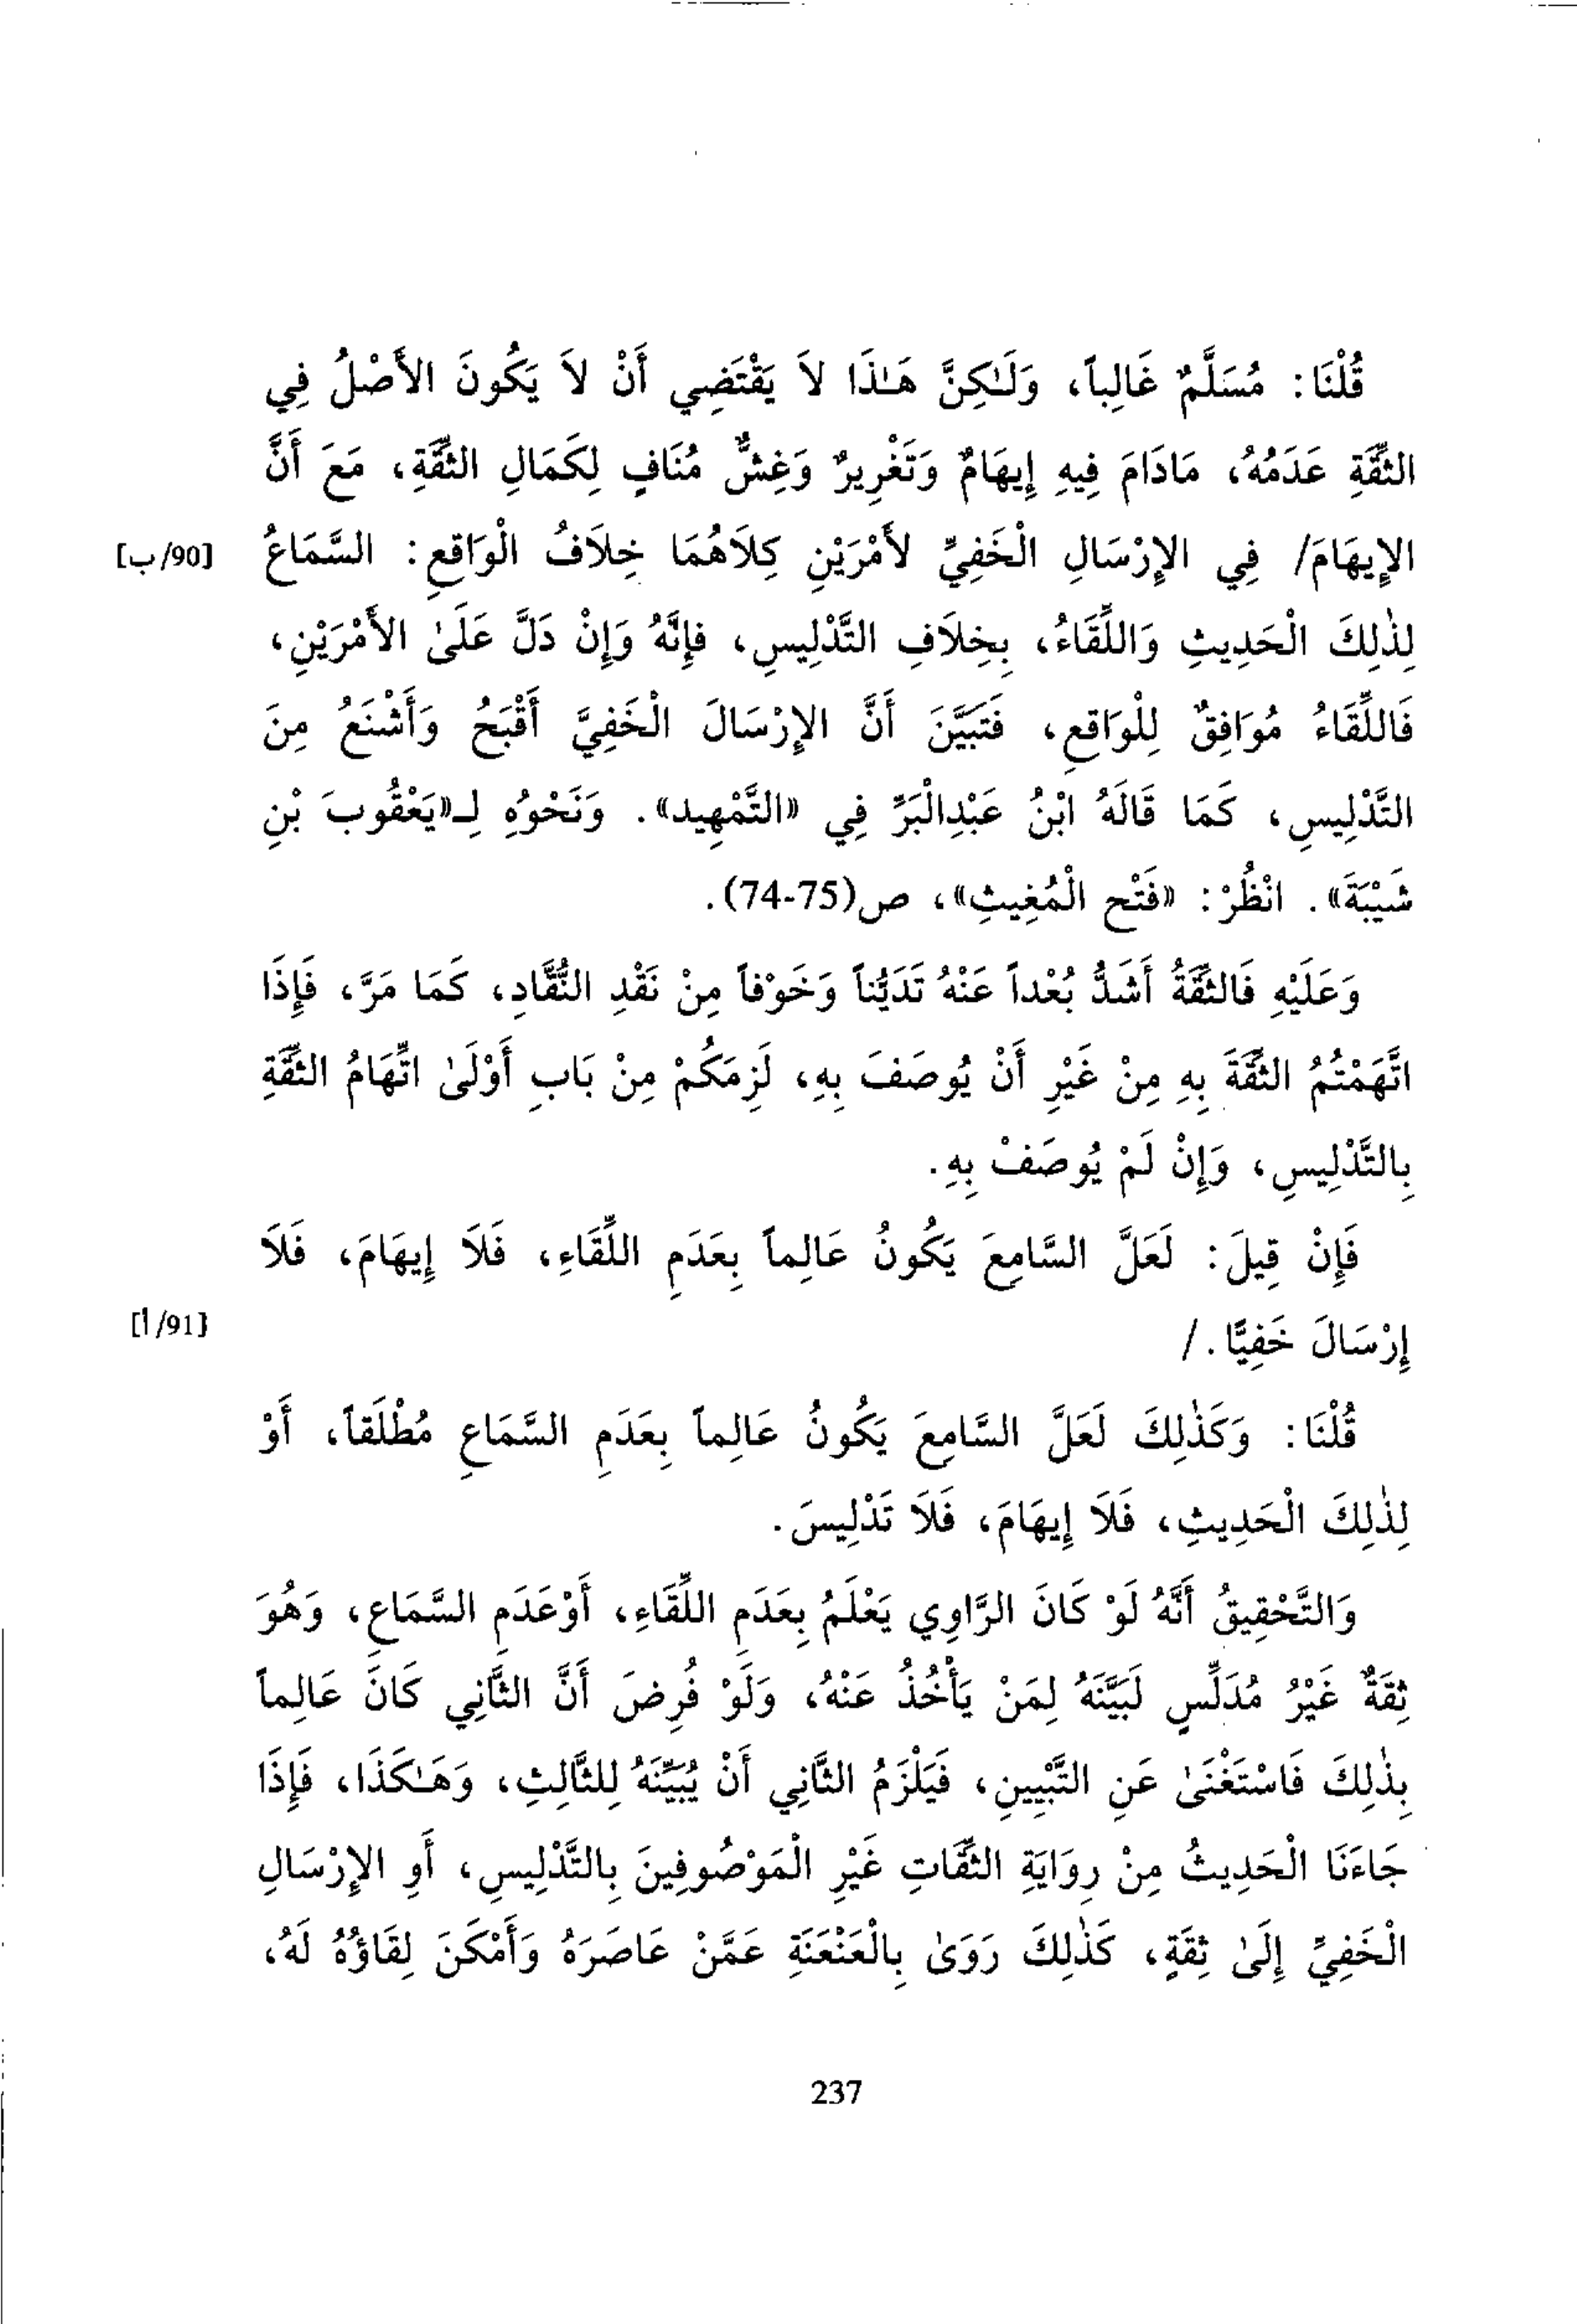 قُلْنَا: مُسَلَّمٌ غَالِباً، وَلَـٰكِنَّ هَـٰذَا لاَ يَقْتَضِي أَنْ لاَ يَكُونَ الأَصْلُ فِي
الثِّقَةِ عَدَمُهُ، مَادَامَ فِيهِ إِيهَامٌ وَتَغْرِيرٌ وَغِشٌّ مُنَافٍ لِكَمَالِ الثِّقَةِ، مَعَ أَنَّ
الإِيهَامَ/ فِي الإِرْسَالِ الْخَفِيِّ لأَمْرَيْنِ كِلاَهُمَا خِلاَفُ الْوَاقِعِ: السَّمَاعُ [90/ب]
لِذٰلِكَ الْحَدِيثِ وَاللِّقَاءُ، بِخِلاَفِ التَّدْلِيسِ، فَإِنَّهُ وَإِنْ دَلَّ عَلَىٰ الأَمْرَيْنِ،
فَاللِّقَاءُ مُوَافِقٌ لِلْوَاقِعِ، فَتَبَيَّنَ أَنَّ الإِرْسَالَ الْخَفِيَّ أَقْبَحُ وَأَشْنَعُ مِنَ
التَّدْلِيسِ، كَمَا قَالَهُ ابْنُ عَبْدِالْبَرِّ فِي «التَّمْهِيد». وَنَحْوُهِ لِـ«يَعْقُوبَ بْنِ
شَيْبَةَ». انْظُرْ: «فَتْح الْمُغِيثِ»، ص(74-75).
وَعَلَيْهِ فَالثِّقَةُ أَشَدُّ بُعْداً عَنْهُ تَدَيُّناً وَخَوْفاً مِنْ نَقْدِ النُّقَّادِ، كَمَا مَرَّ، فَإِذَا
اتَّهَمْتُمُ الثِّقَةَ بِهِ مِنْ غَيْرِ أَنْ يُوصَفَ بِهِ، لَزِمَكُمْ مِنْ بَابِ أَوْلَىٰ اتِّهَامُ الثِّقَةِ
بِالتَّدْلِيسِ، وَإِنْ لَمْ يُوصَفْ بِهِ.
فَإِنْ قِيلَ: لَعَلَّ السَّامِعَ يَكُونُ عَالِماً بِعَدَمِ اللِّقَاءِ، فَلاَ إِيهَامَ، فَلاَ
إِرْسَالَ خَفِيًّا. / [91/أ]
قُلْنَا: وَكَذٰلِكَ لَعَلَّ السَّامِعَ يَكُونُ عَالِماً بِعَدَمِ السَّمَاعِ مُطْلَقاً، أَوْ
لِذٰلِكَ الْحَدِيثِ، فَلاَ إِيهَامَ، فَلاَ تَدْلِيسَ.
وَالتَّحْقِيقُ أَنَّهُ لَوْ كَانَ الرَّاوِي يَعْلَمُ بِعَدَمِ اللِّقَاءِ، أَوْعَدَمِ السَّمَاعِ، وَهُوَ
ثِقَةٌ غَيْرُ مُدَلِّسٍ لَبَيَّنَهُ لِمَنْ يَأْخُذُ عَنْهُ، وَلَوْ فُرِضَ أَنَّ الثَّانِي كَانَ عَالِماً
بِذٰلِكَ فَاسْتَغْنَىٰ عَنِ التَّبْيِينِ، فَيَلْزَمُ الثَّانِي أَنْ يُبَيِّنَهُ لِلثَّالِثِ، وَهَـٰكَذَا، فَإِذَا
جَاءَنَا الْحَدِيثُ مِنْ رِوَايَةِ الثِّقَاتِ غَيْرِ الْمَوْصُوفِينَ بِالتَّدْلِيسِ، أَوِ الإِرْسَالِ
الْخَفِيِّ إِلَىٰ ثِقَةٍ، كَذٰلِكَ رَوَىٰ بِالْعَنْعَنَةِ عَمَّنْ عَاصَرَهُ وَأَمْكَنَ لِقَاؤُهُ لَهُ،
237